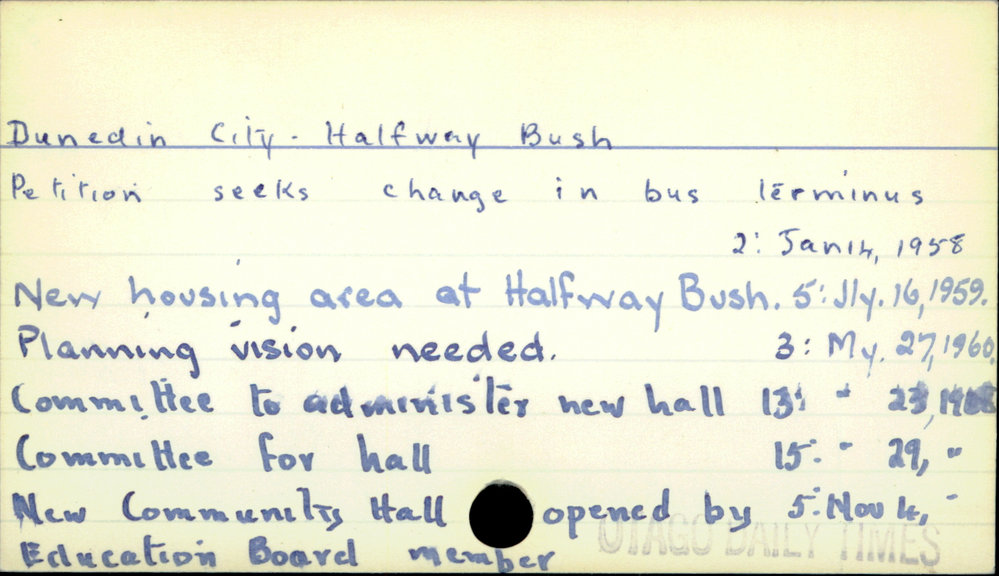 Dunedin City - Halfway Bush
Petition seeks change in bus terminus
2: Jan 14, 1958
New housing area at Halfway Bush. 5: Jly. 16, 1959.
Planning vision needed. 3: My. 27, 1960.
Committee to administer new hall 13: " 23,
Committee for hall 15: " 29, "
New Community Hall opened by 5: Nov 4, "
Education Board member
OTAGO DAILY TIMES